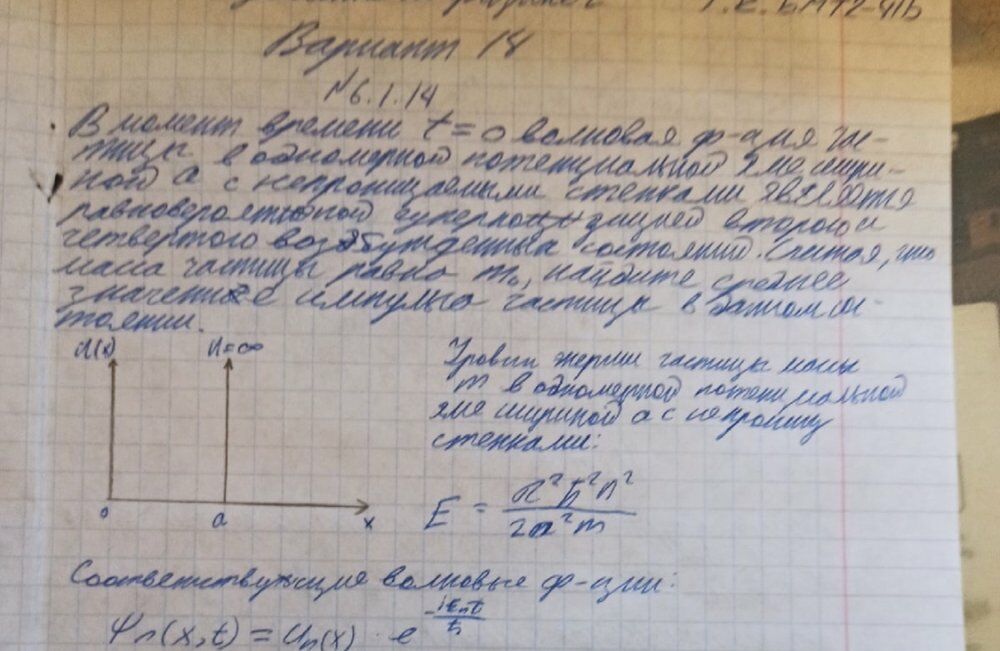 Т.Е. БМТ2-41Б
Вариант 14
№6.1.14
В момент времени t=0 волновая ф-ция ча-
тицы в одномерной потенциальной яме шири-
ной a с непроницаемыми стенками является
равновероятной суперпозицией второго и
четвертого возбужденных состояний. Считая, что
масса частицы равна m₀, найдите среднее
значение импульса частицы в данном со-
тоянии.
U(x) U=∞
Уровни энергии частицы массы
m в одномерной потенциальной
яме шириной a с непрониц
стенками:
0 a x
E = π²ħ²n² / 2a²m
Соответствующие волновые ф-ции:
Ψn(x,t) = Un(x) · e^(-iEnt/ħ)